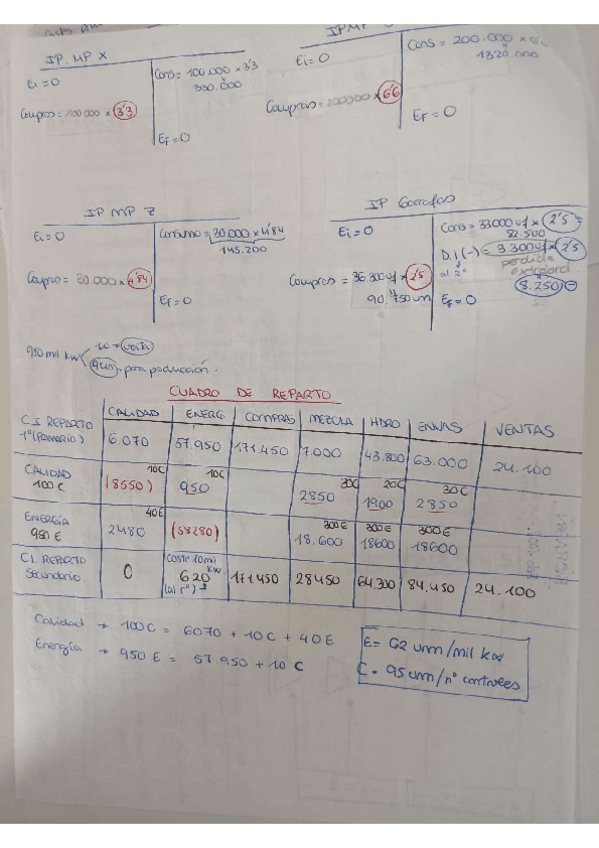 IP. MP X
Ei = 0
Cons = 100.000 x 3'3
330.000
Compras = 100 000 x 3'3
EF = 0
Ei = 0
Cons = 200.000 x
1320.000
Compras = 200000 x 6'6
EF = 0
IP MP Z
Ei = 0
Consumo = 30.000 x 4'84
145.200
Compras = 30.000 x 4'84
EF = 0
IP Garrafas
Ei = 0
Cons = 33000 uf x 2'5
82.500
D.I (-) = 3.300 uf x 2'5
al rº
perdida
extraord.
8.250
Compras = 36.300 uf x 2'5
90.750 um
EF = 0
910 mil kw
10 → venta
900 → para producción.
CUADRO DE REPARTO
CALIDAD ENERG COMPRAS MEZCLA HDRO ENVAS VENTAS
C.I REPARTO 1º (Primario) 6.070 57.950 171.450 7.000 43.800 63.000 24.100
CALIDAD 100 C (8550) 10C 950 10C 2850 30C 1900 20C 2850 30C
ENERGÍA 950 E 2480 40E (58280) 18.600 300E 18600 300E 18600 300E
C.I. REPARTO Secundario 0 Coste 10 mil kw 620 (al rº) 171450 28450 64.300 84.450 24.100
Calidad → 100 C = 6070 + 10 C + 40 E
Energía → 950 E = 57.950 + 10 C
E = 62 um/mil kw
C = 95 um/nº controles